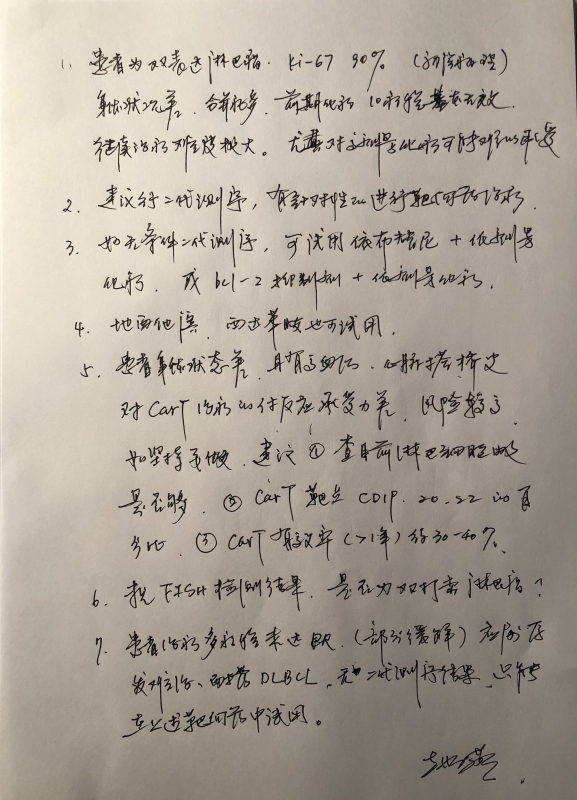 1. 患者为双表达淋巴瘤. Ki-67 90% (初治病理)
身体状况差、合并症多、前期化疗10疗程基本无效.
继续治疗难度极大。尤其对高剂量化疗可能难以耐受
2. 建议行二代测序,有针对性地进行靶向药治疗.
3. 如无条件二代测序,可试用依布替尼 + 低剂量
化疗. 或 bcl-2 抑制剂 + 低剂量化疗.
4. 地西他滨、西达苯胺也可试用.
5. 患者身体状态差、且有高血压、心脏搭桥史
对 CarT 治疗的付反应承受力差、风险较高
如坚持要做、建议 ① 查目前淋巴细胞数
是否够. ② CarT 靶点 CD19. 20. 22 的百
分比. ③ CarT 有效率 (>1年) 约30-40%.
6. 找 FISH 检测结果、是否为双打击淋巴瘤?
7. 患者治疗多疗程未达PR.(部分缓解) 应属于
复发难治、耐药 DLBCL、无二代测序结果、只能
在上述靶向药中试用。